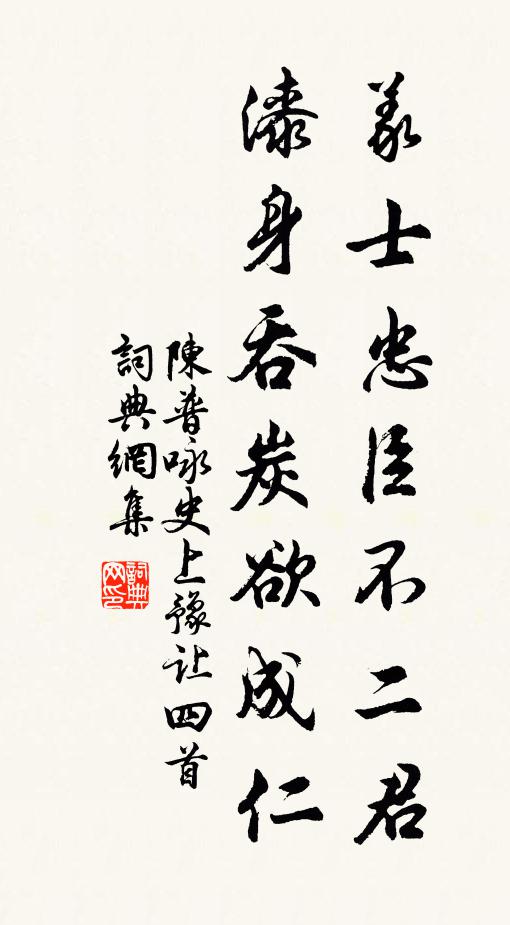 義士忠臣不二君
漆身吞炭欲成仁
陳普咏史上豫让四首
詞典網集
詞典网印